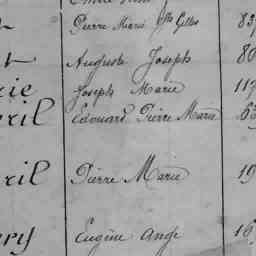 Pierre Marie fils Gilles 83
Auguste Joseph 80
rie Joseph Marie 117
ril Edouard Pierre Marie 63
ril Pierre Marie 19
ry Eugène Ange 16